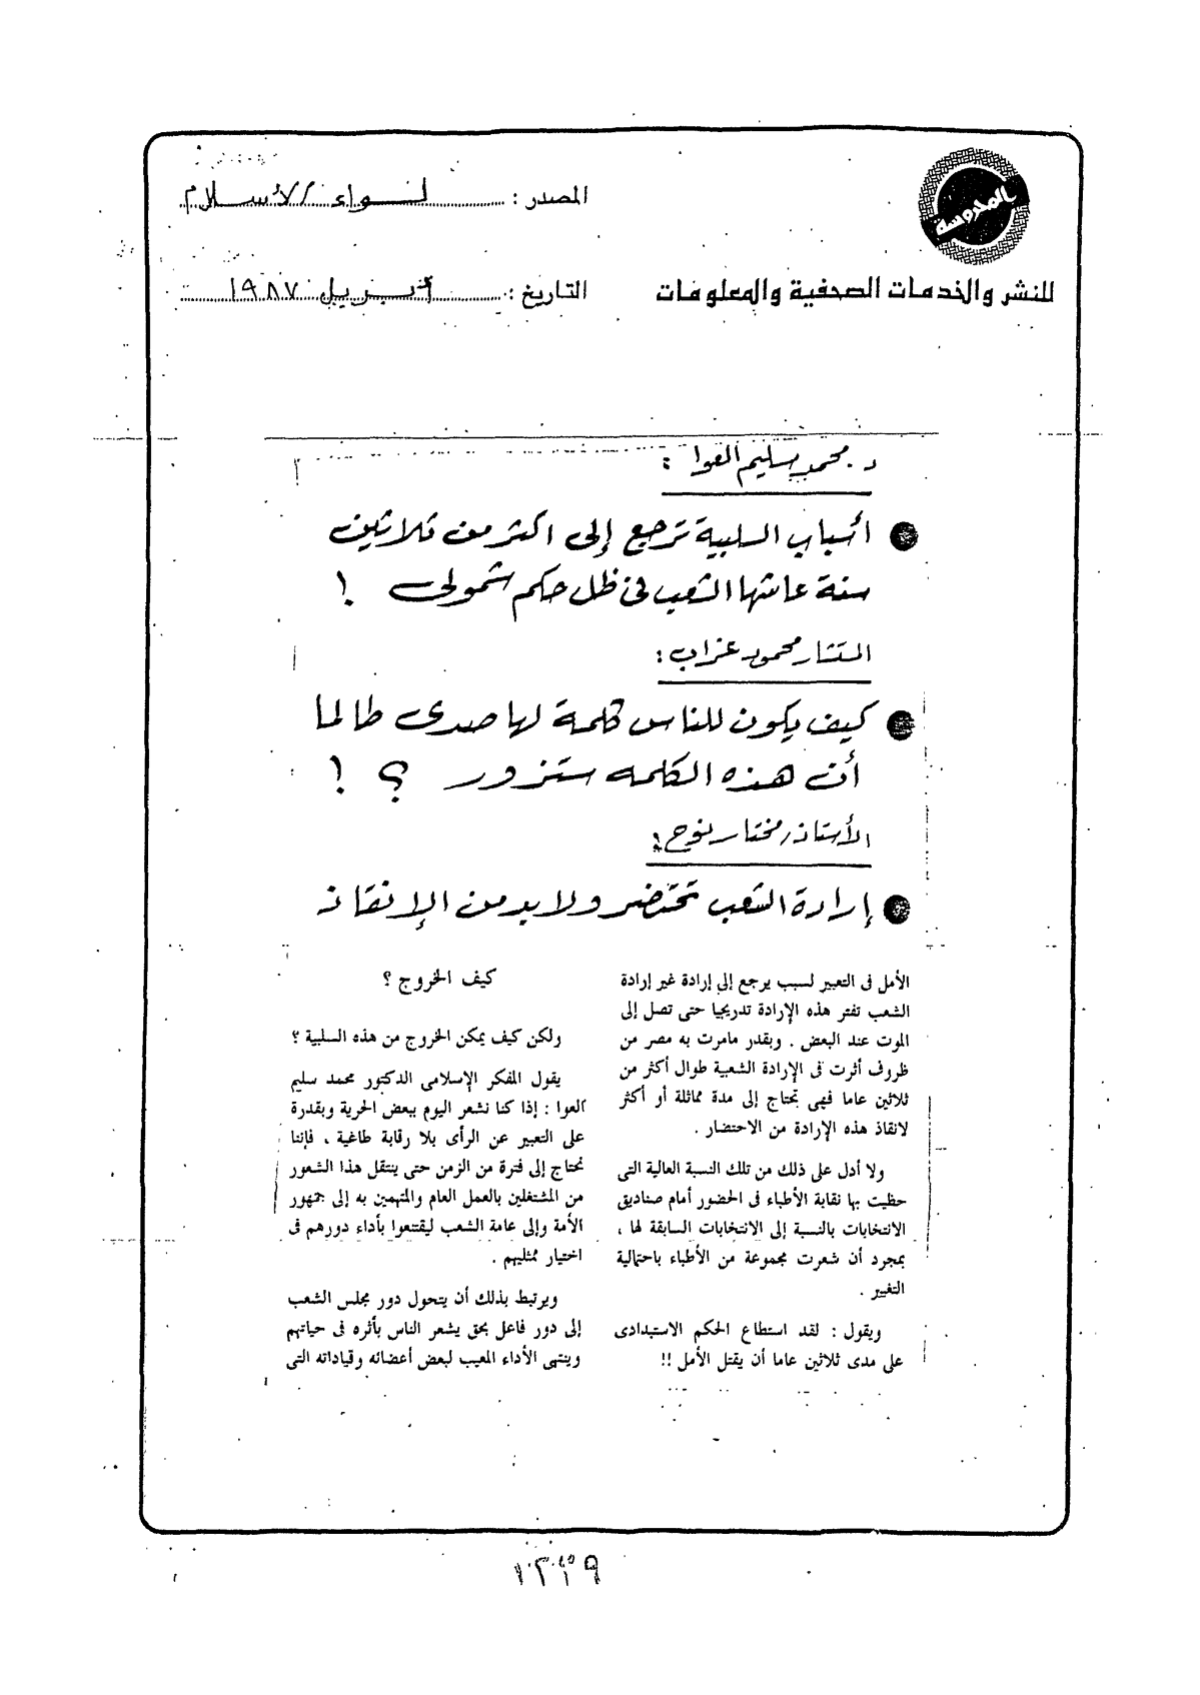 المحروسة
للنشر والخدمات الصحفية والمعلومات
المصدر : لواء الأسلام
التاريخ : أبريل ١٩٨٧
د . محمد سليم العوا :
أسباب السلبية ترجع إلى أكثر من ثلاثين
سنة عاشها الشعب فى ظل حكم شمولى !
المستشار محمود عزاب :
كيف يكون للناس كلمة لها صدى طالما
أن هذه الكلمه ستزور ؟ !
الأستاذ مختار نوح :
إرادة الشعب تحتضر ولابد من الإنقاذ
الأمل فى التعبير لسبب يرجع إلى إرادة غير إرادة
الشعب تفتر هذه الإرادة تدريجيا حتى تصل إلى
الموت عند البعض . وبقدر مامرت به مصر من
ظروف أثرت فى الإرادة الشعبية طوال أكثر من
ثلاثين عاما فهى تحتاج إلى مدة مماثلة أو أكثر
لانقاذ هذه الإرادة من الاحتضار .
ولا أدل على ذلك من تلك النسبة العالية التى
حظيت بها نقابة الأطباء فى الحضور أمام صناديق
الانتخابات بالنسبة إلى الانتخابات السابقة لها ،
بمجرد أن شعرت مجموعة من الأطباء باحتمالية
التغيير .
ويقول : لقد استطاع الحكم الاستبدادى
على مدى ثلاثين عاما أن يقتل الأمل !!
كيف الخروج ؟
ولكن كيف يمكن الخروج من هذه السلبية ؟
يقول المفكر الإسلامى الدكتور محمد سليم
العوا : إذا كنا نشعر اليوم ببعض الحرية وبقدرة
على التعبير عن الرأى بلا رقابة طاغية ، فإننا
نحتاج إلى فترة من الزمن حتى ينتقل هذا الشعور
من المشتغلين بالعمل العام والمهتمين به إلى جمهور
الأمة وإلى عامة الشعب ليقتنعوا بأداء دورهم فى
اختيار ممثليهم .
ويرتبط بذلك أن يتحول دور مجلس الشعب
إلى دور فاعل بحق يشعر الناس بأثره فى حياتهم
وينتهى الأداء المعيب لبعض أعضائه وقياداته التى